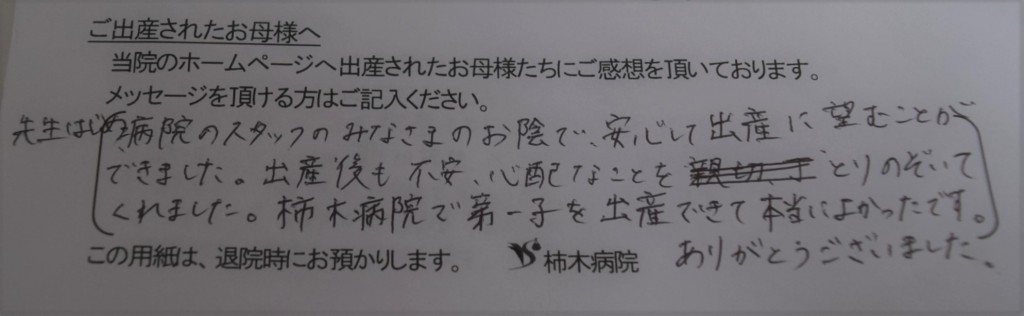 ご出産されたお母様へ
当院のホームページへ出産されたお母様たちにご感想を頂いております。
メッセージを頂ける方はご記入ください。
先生はじめ病院のスタッフのみなさまのお陰で、安心して出産に望むことが
できました。出産後も不安、心配なことをとりのぞいて
くれました。柿木病院で第一子を出産できて本当によかったです。
ありがとうございました。
この用紙は、退院時にお預かりします。 柿木病院